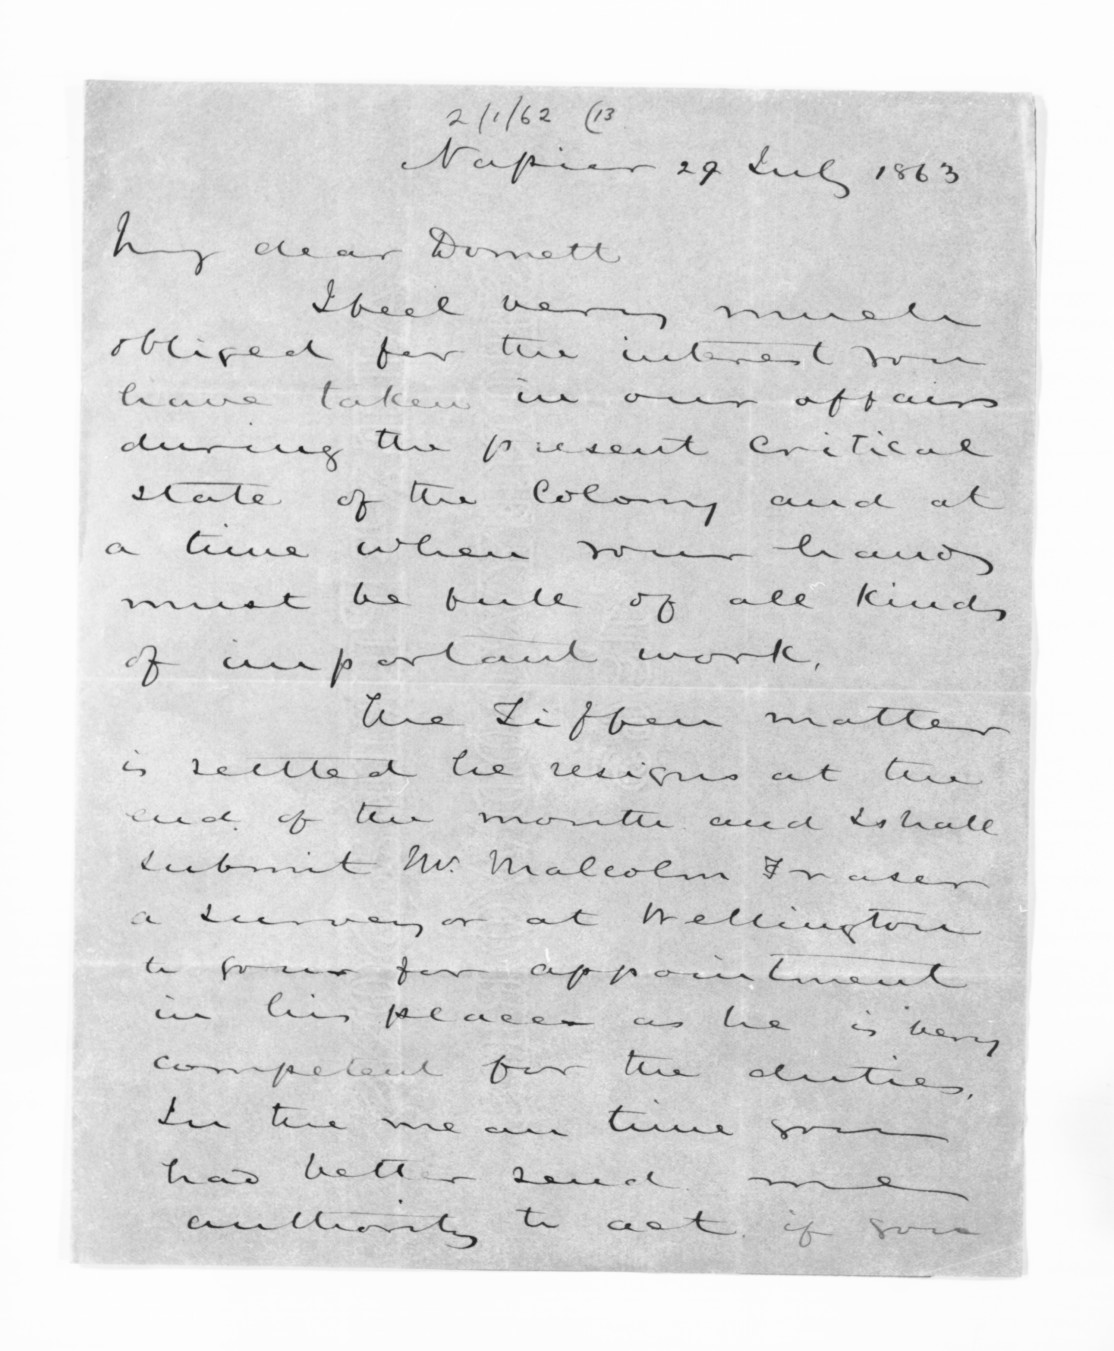 2/1/62 (13
Napier 29 July 1863
My dear Domett
I feel very much
obliged for the interest you
have taken in our affairs
during the present critical
state of the Colony and at
a time when your hands
must be full of all kinds
of important work.
The Tiffen matter
is settled he resigns at the
end of the month and I shall
submit Mr. Malcolm Fraser
a surveyor at Wellington
to you for appointment
in his place as he is very
competent for the duties.
In the mean time you
had better send me
authority to act if you